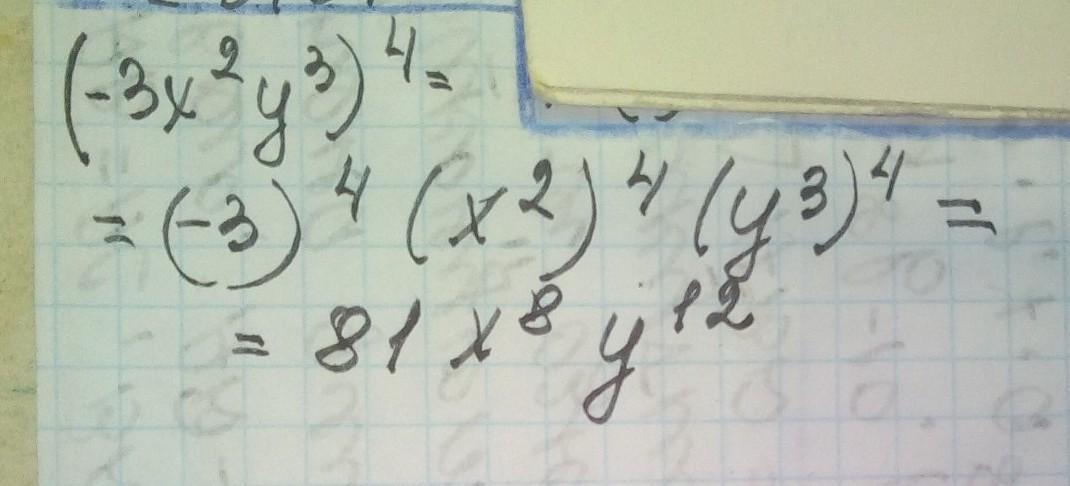 (-3x²y³)⁴=
= (-3)⁴ (x²)⁴ (y³)⁴ =
= 81 x⁸ y¹²